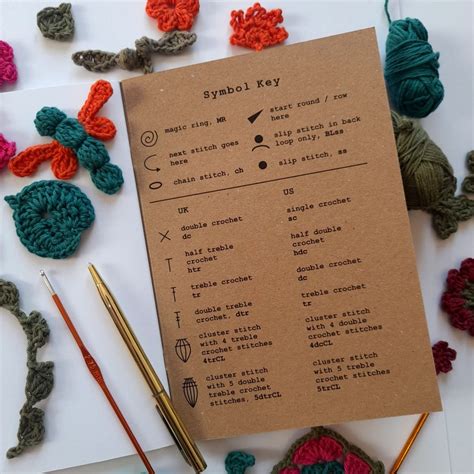 Symbol Key
magic ring, MR
next stitch goes
here
chain stitch, ch
start round / row
here
slip stitch in back
loop only, BLss
slip stitch, ss
UK
double crochet
dc
half treble
crochet
htr
treble crochet
tr
double treble
crochet, dtr
cluster stitch
with 4 treble
crochet stitches
4trCL
cluster stitch
with 5 double
treble crochet
stitches, 5dtrCL
US
single crochet
sc
half double
crochet
hdc
double crochet
dc
treble crochet
tr
cluster stitch
with 4 double
crochet stitches
4dcCL
cluster stitch
with 5 treble
crochet stitches
5trCL